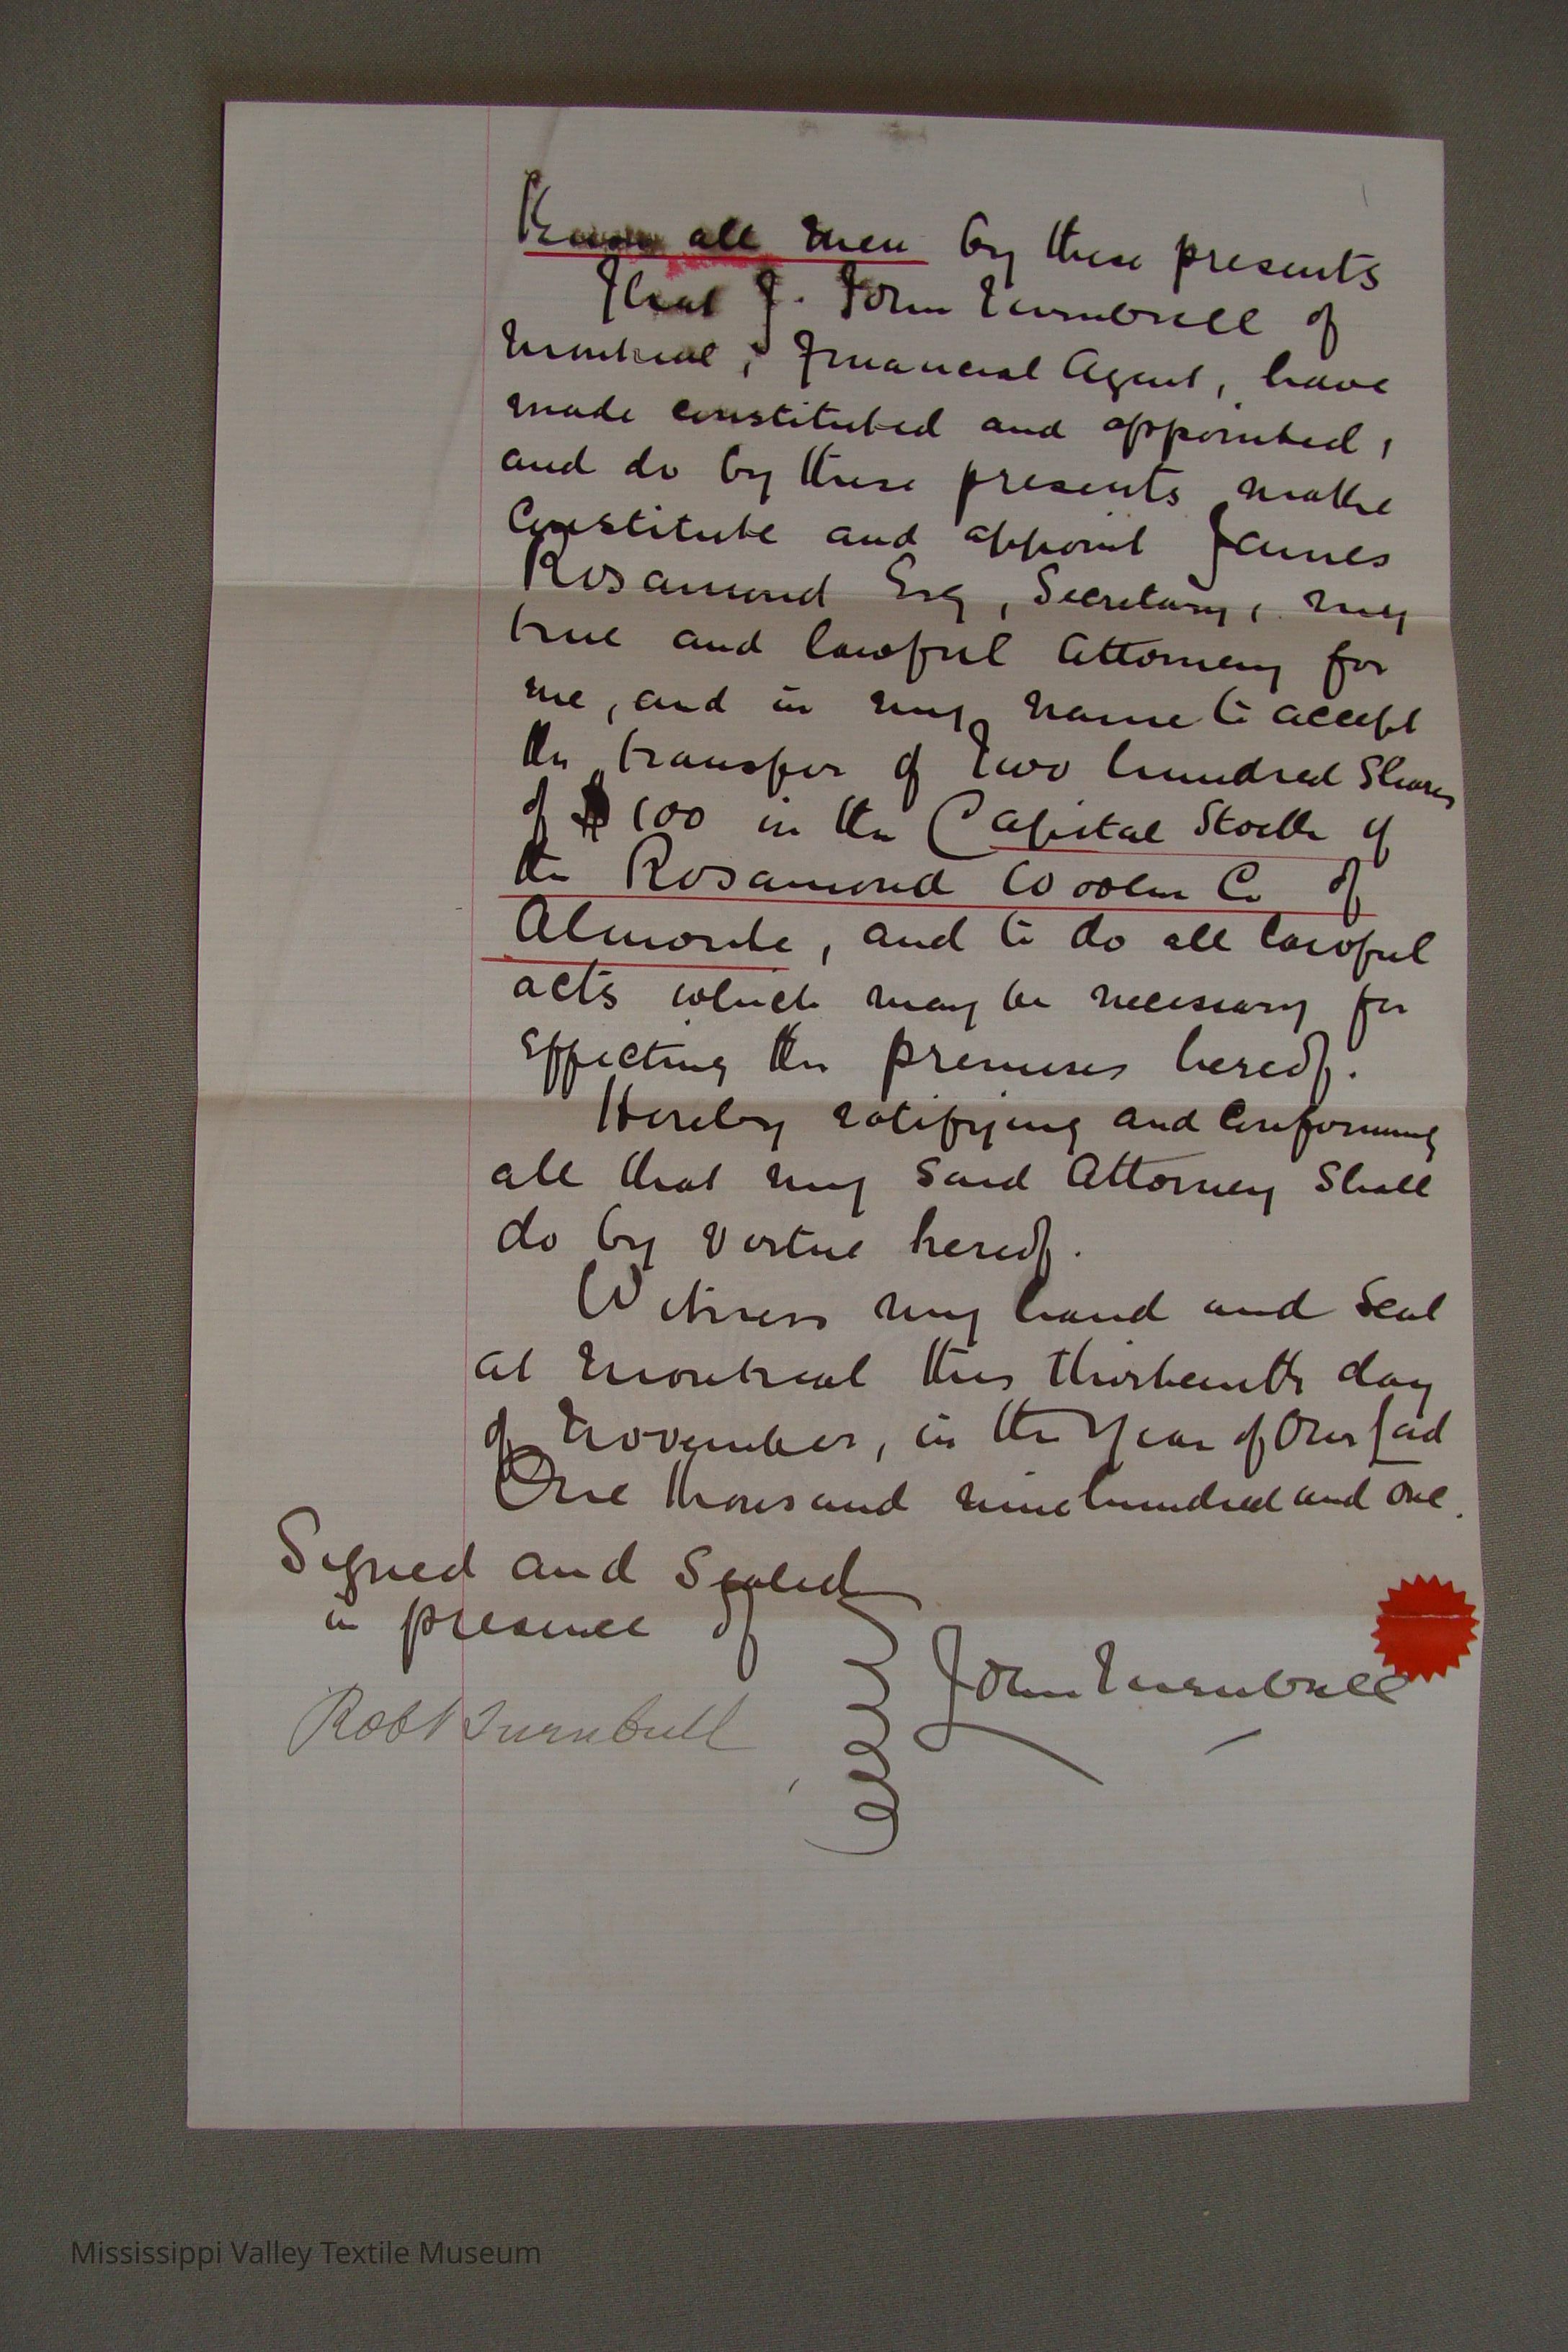 Know all men by these presents
That I. John Turnbull of
Montreal, Financial Agent, have
made constituted and appointed,
and do by these presents make
Constitute and appoint James
Rosamond Esq, Secretary, my
true and lawful Attorney for
me, and in my name to accept
the transfer of Two hundred Shares
of $100 in the Capital Stock of
the Rosamond Woolen Co of
Almonte, and to do all lawful
acts which may be necessary for
effecting the premises hereof.
Hereby ratifying and Confirming
all that my Said Attorney Shall
do by Virtue hereof.
Witness my hand and Seal
at Montreal this thirteenth day
of November, in the Year of Our Lord
One thousand nine hundred and one.
Signed and Sealed
in presence of
John Turnbull
Robt Turnbull
Mississippi Valley Textile Museum